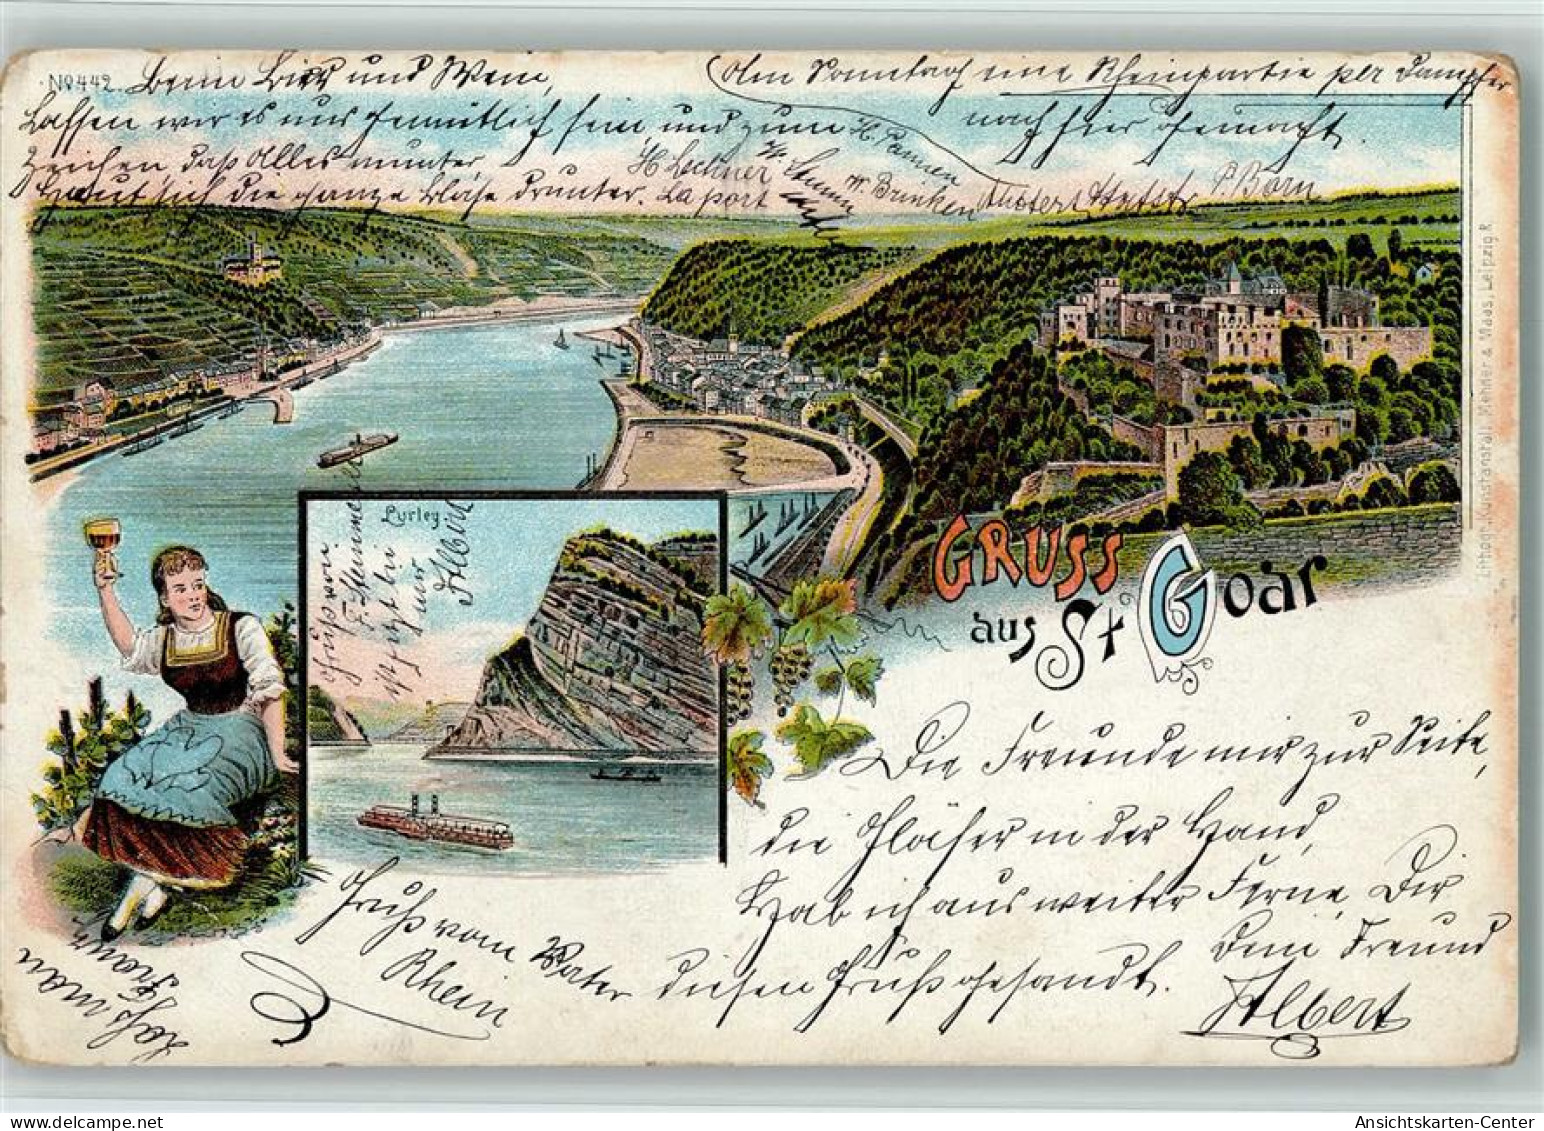 No 442.
Beim Bier und Wein,
Lassen wir es uns gemütlich sein und zum
Zeichen daß Alles munter,
Haut sich die ganze Blase drunter. Laport
H Lechner
W. Brinken
P. Born
Am Sonntag eine Rheinpartie per Dampfer
nach hier gemacht.
Lithogr. Kunstanstalt Mehner & Maas, Leipzig R
Lurley.
GRUSS
aus St. Goar
Die Freunde mir zur Seite,
die Gläser in der Hand,
Hab ich aus weiter Ferne, Dir
diesen Gruß gesandt.
Dein Freund
Albert
Gruß vom Vater
Rhein
Gruß von
Albert
Ansichtskarten-Center